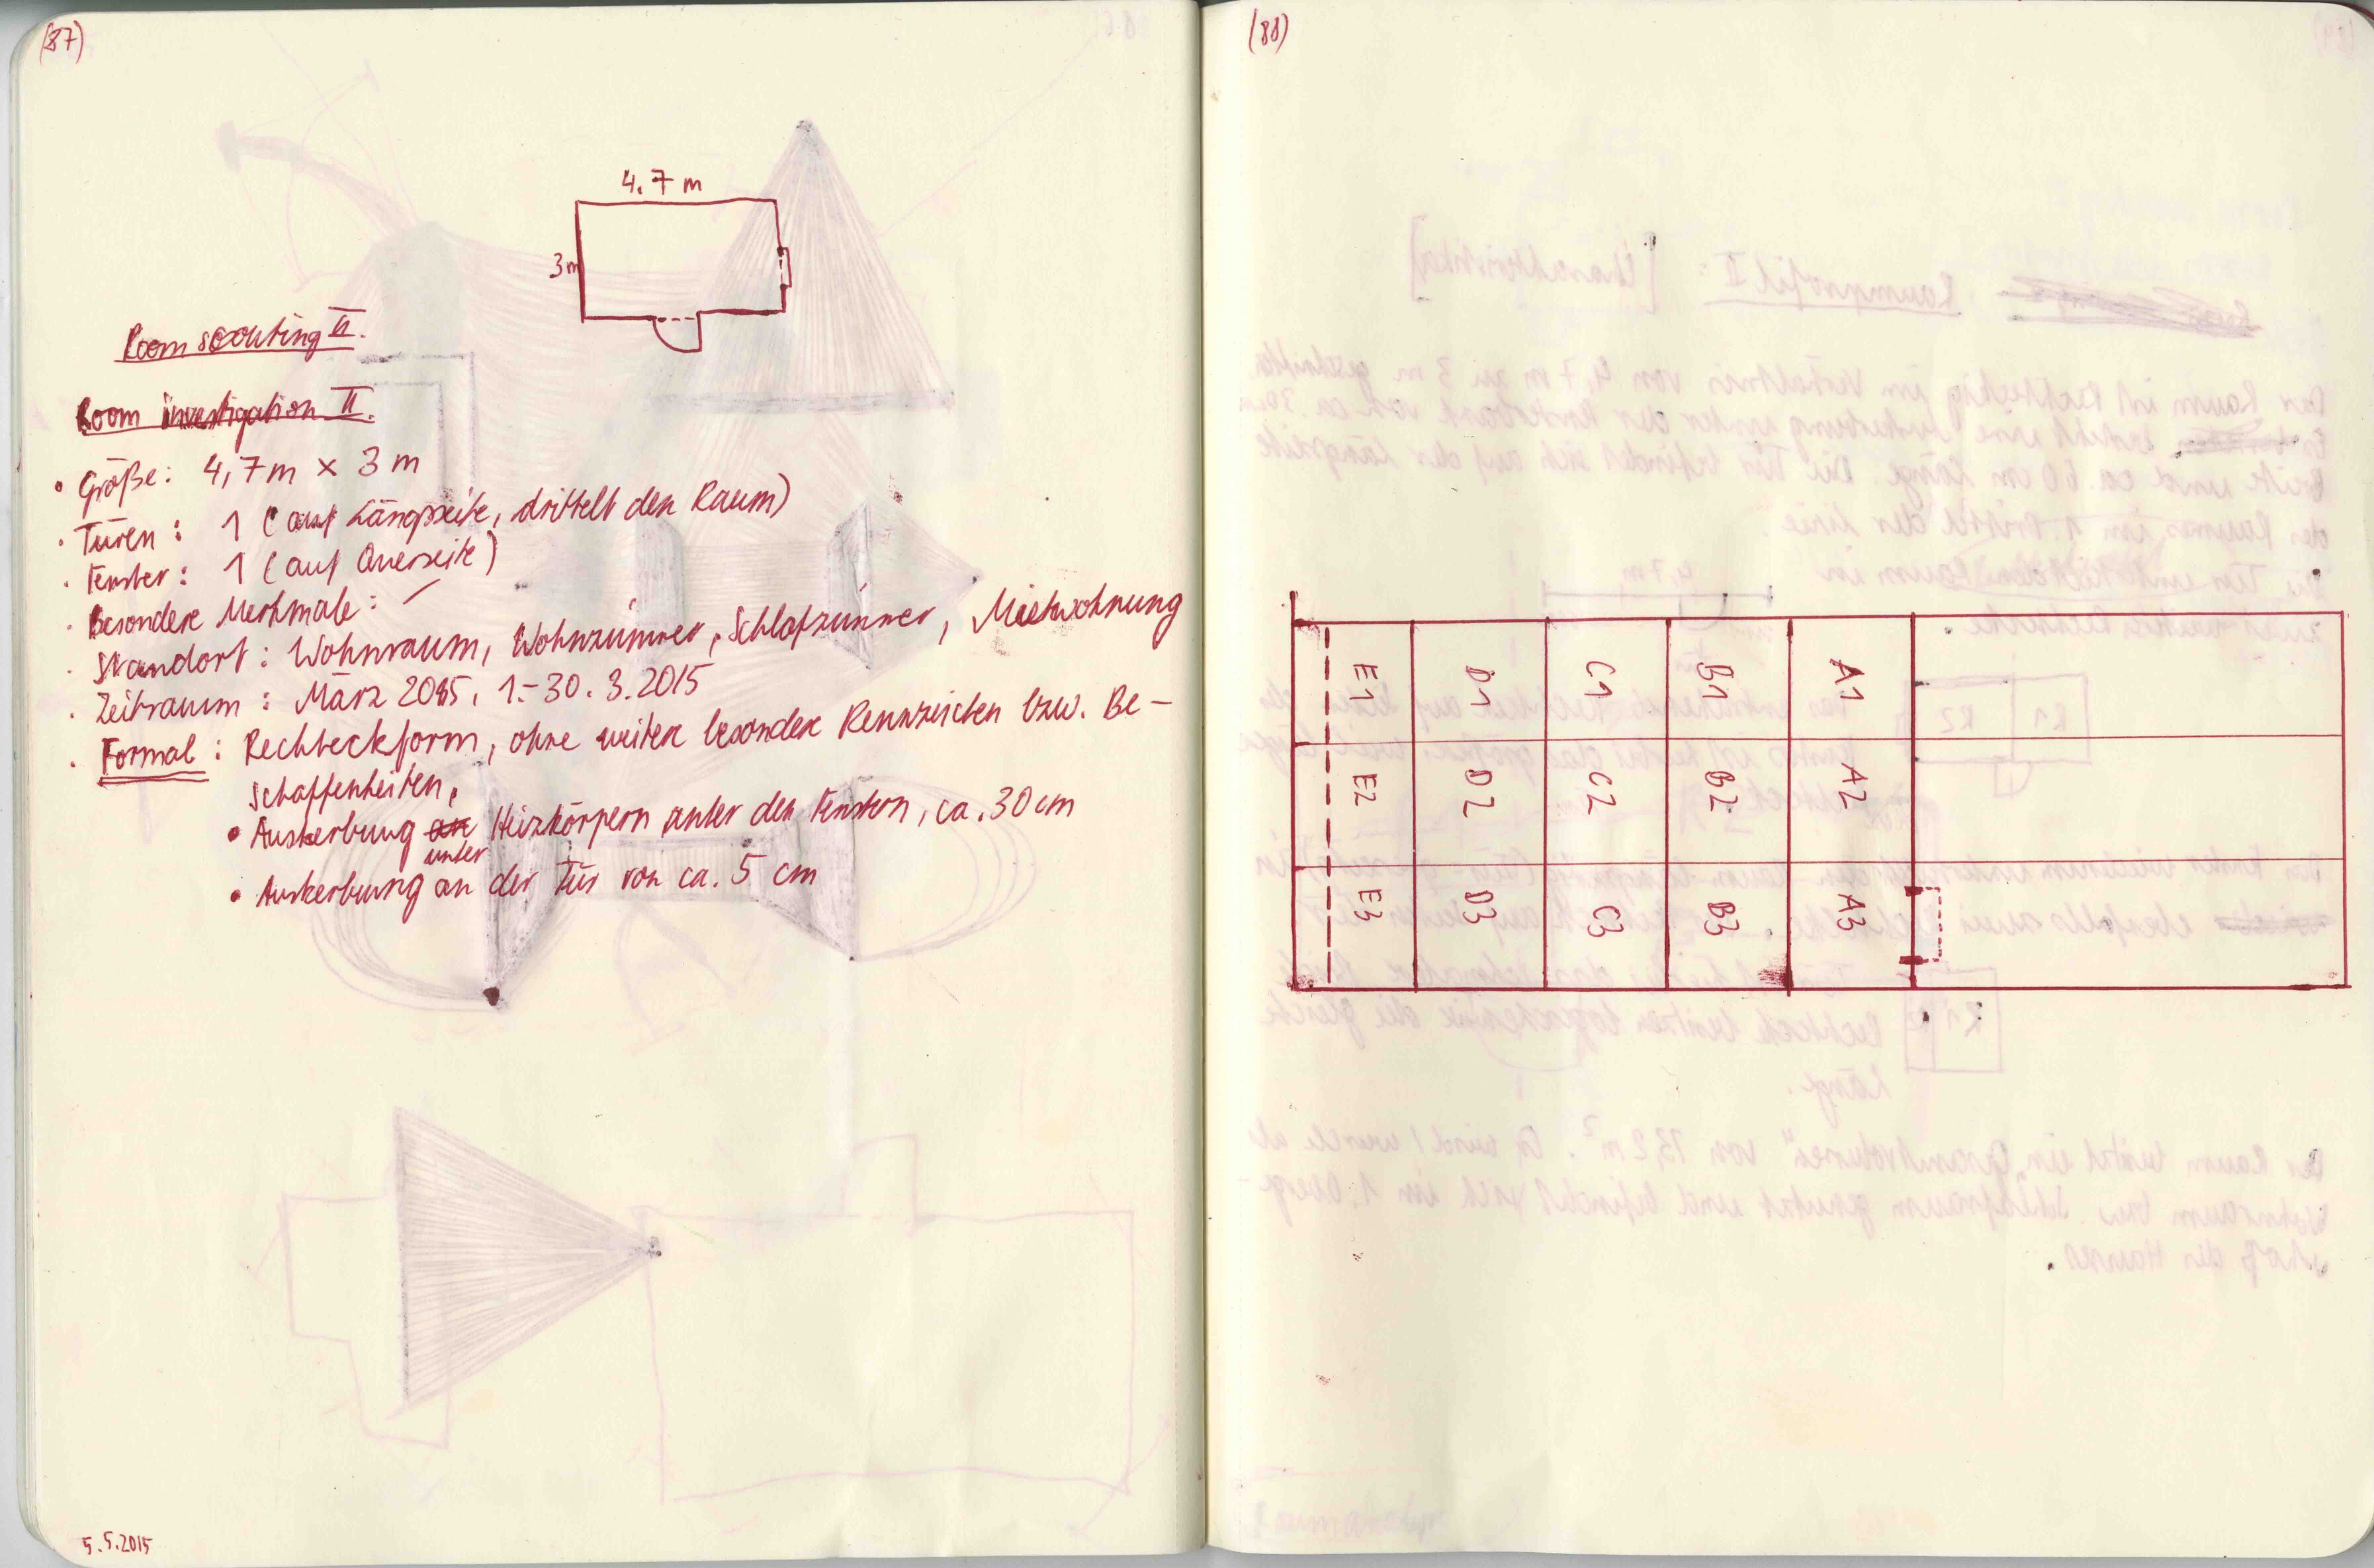 (87)
4.7 m
3m
Room scouting II.
Room investigation II.
• Größe: 4,7m × 3m
· Türen: 1 (auf Längsseite, drittelt den Raum)
· Fenster: 1 (auf Querseite)
· Besondere Merkmale: –
· Standort: Wohnraum, Wohnzimmer, Schlafzimmer, Mietwohnung
· Zeitraum: März 2015, 1.-30.3.2015
· Formal: Rechteckform, ohne weitere besondere Kennzeichen bzw. Be-
schaffenheiten,
• Auskerbung an Heizkörpern unter den Fenstern, ca. 30cm
unter
• Auskerbung an der Tür von ca. 5 cm
5.5.2015
(88)
E1 D1 C1 B1 A1
E2 D2 C2 B2 A2
E3 D3 C3 B3 A3